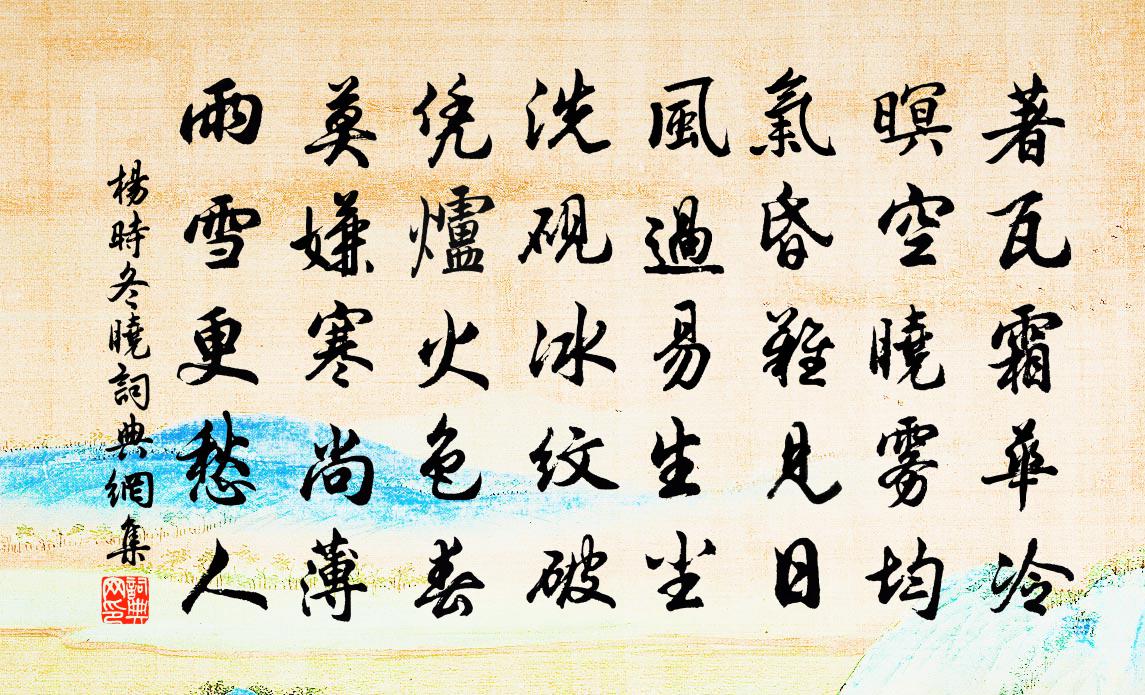 著瓦霜華冷
暝空曉雾均
氣昏難見日
風過易生尘
洗硯冰紋破
凭爐火色春
莫嫌寒尚薄
雨雪更愁人
楊時冬曉詞典網集
詞典网印